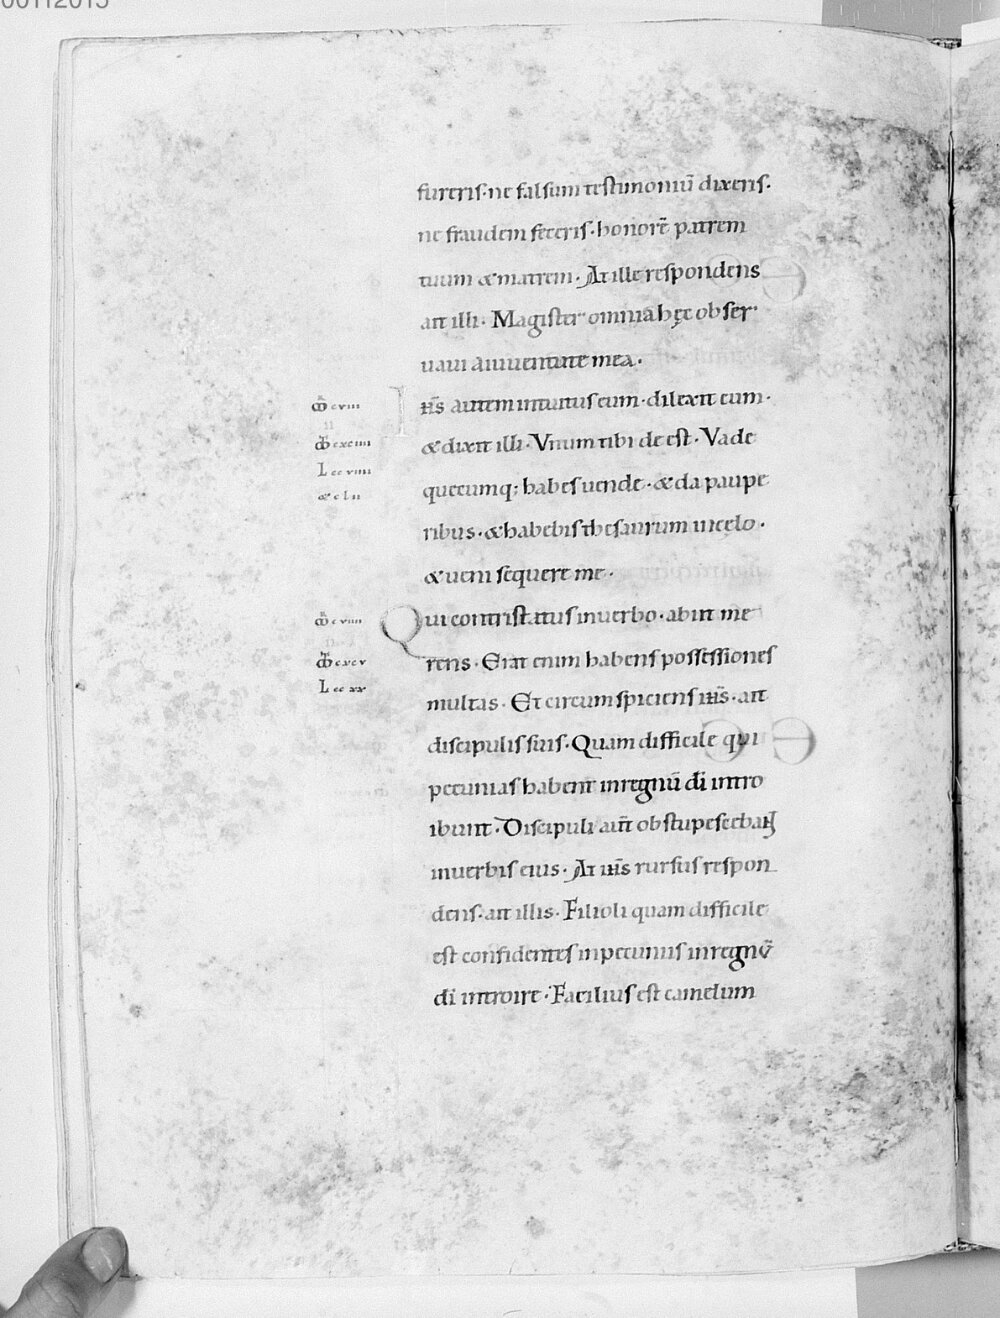 fureris·ne falsum testimoniū dixeris·
ne fraudem feceris·honorē patrem
tuum &matrem·At ille respondens
ait illi·Magister omnia hęc obser
uaui aiuuentute mea·
Ihs̄ autem intuitus eum·dilexit eum·
&dixit illi·Vnum tibi de est·Vade
quecumq; habes uende·&da paupe
ribus·&habebis thesaurum incęlo·
&ueni sequere me·
Qui contristatus inuerbo·abiit me
rens·Erat enim habens possessiones
multas·Et circumspiciens ihs̄·ait
discipulis suis·Quam difficile qui
pecunias habent inregnū dī intro
ibunt·Discipuli aut̄ obstupescebant
inuerbis eius·At ihs̄ rursus respon
dens·ait illis·Filioli quam difficile
est confidentes inpecuniis inregnū
dī introire·Facilius est camelum
cviii
cxciiii
L ccxviiii
cviiii
cxcv
L ccxx